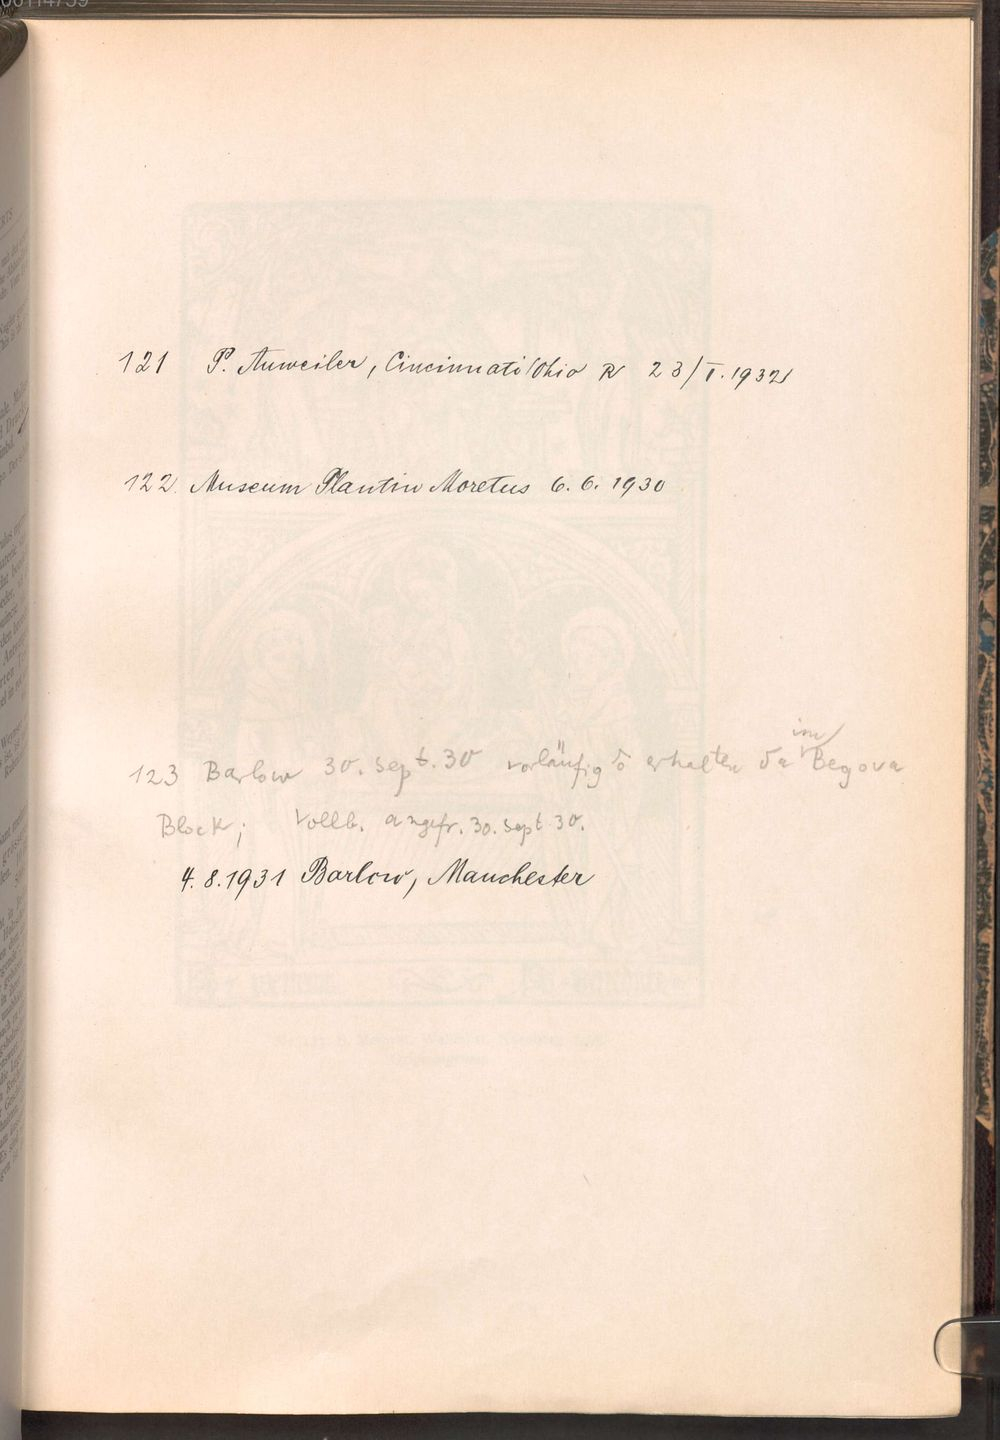 121 P. Auweiler, Cincinnati/Ohio R 23/I.1932
122. Museum Plantin Moretus 6.6.1930
im
123 Barlow 30. Sept. 30 vorläufig erhalten da Begova
Block; Vollb. angefr. 30. Sept 30.
4.8.1931 Barlow, Manchester